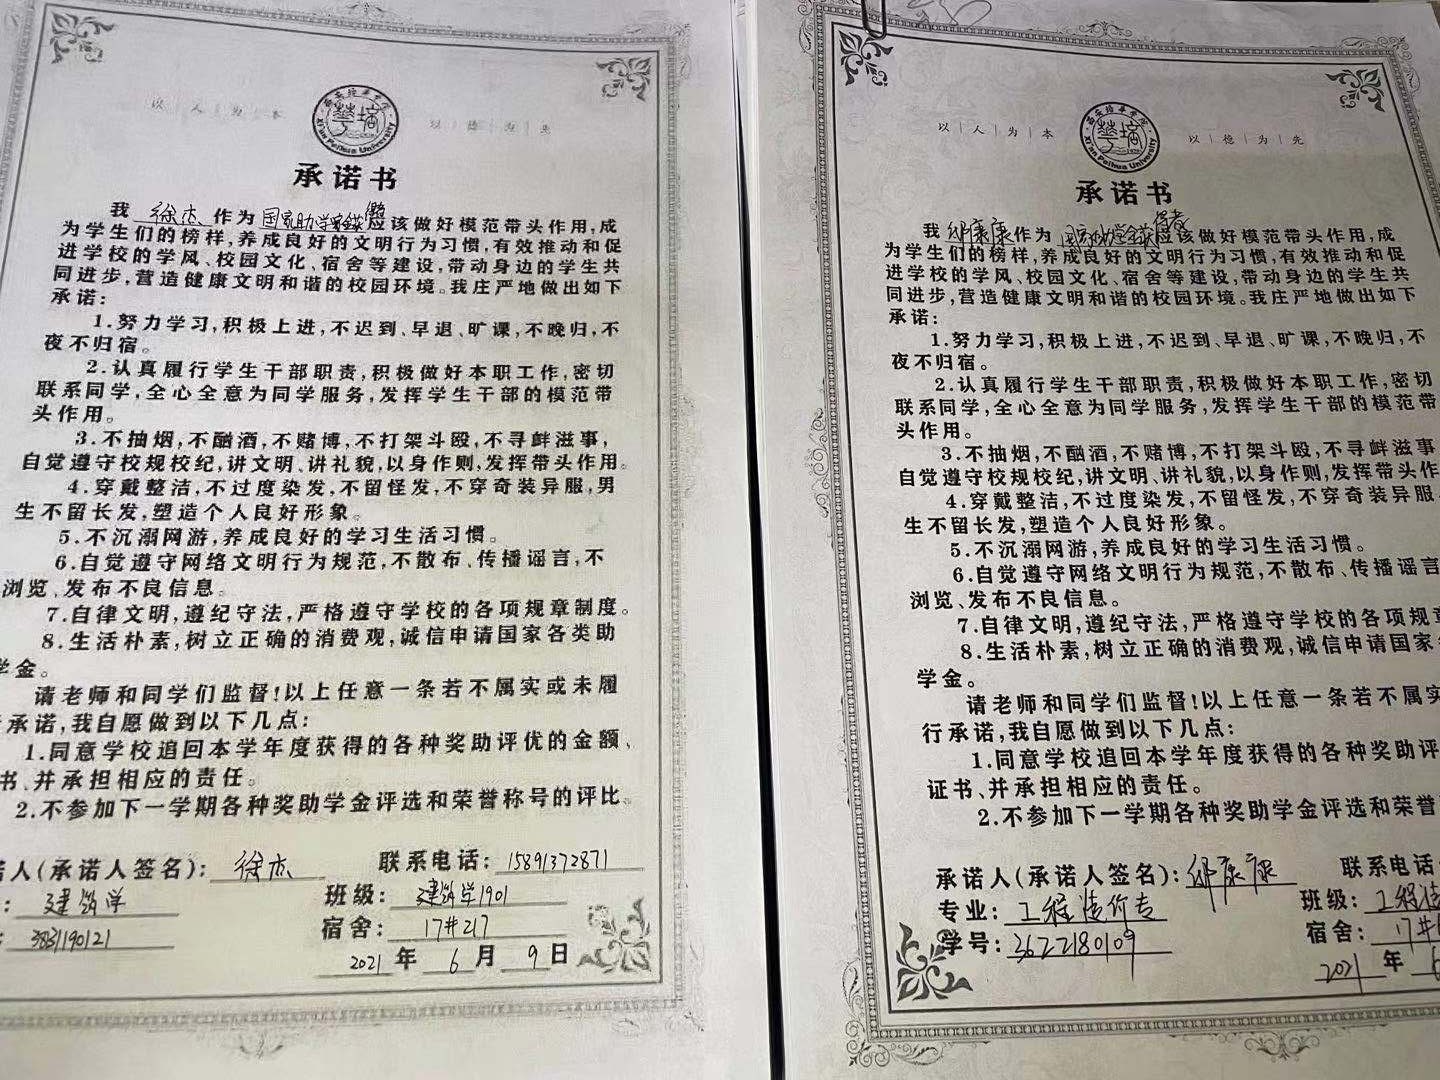 以人为本
西安培华学院
Xi'an Peihua University
以德为先
承诺书
我 徐杰 作为 国家助学金获得者应该做好模范带头作用,成
为学生们的榜样,养成良好的文明行为习惯,有效推动和促
进学校的学风、校园文化、宿舍等建设,带动身边的学生共
同进步,营造健康文明和谐的校园环境。我庄严地做出如下
承诺:
1.努力学习,积极上进,不迟到、早退、旷课,不晚归,不
夜不归宿。
2.认真履行学生干部职责,积极做好本职工作,密切
联系同学,全心全意为同学服务,发挥学生干部的模范带
头作用。
3.不抽烟,不酗酒,不赌博,不打架斗殴,不寻衅滋事,
自觉遵守校规校纪,讲文明、讲礼貌,以身作则,发挥带头作用。
4.穿戴整洁,不过度染发,不留怪发,不穿奇装异服,男
生不留长发,塑造个人良好形象。
5.不沉溺网游,养成良好的学习生活习惯。
6.自觉遵守网络文明行为规范,不散布、传播谣言,不
浏览、发布不良信息。
7.自律文明,遵纪守法,严格遵守学校的各项规章制度。
8.生活朴素,树立正确的消费观,诚信申请国家各类助
学金。
请老师和同学们监督!以上任意一条若不属实或未履
承诺,我自愿做到以下几点:
1.同意学校追回本学年度获得的各种奖助评优的金额、
书、并承担相应的责任。
2.不参加下一学期各种奖助学金评选和荣誉称号的评比。
人(承诺人签名): 徐杰 联系电话: 15891372871
: 建筑学 班级: 建筑学1901
: 3831190121 宿舍: 17#217
2021 年 6 月 9 日
以人为本
西安培华学院
Xi'an Peihua University
以德为先
承诺书
我 邹康康 作为 国家助学金获得者应该做好模范带头作用,成
为学生们的榜样,养成良好的文明行为习惯,有效推动和促
进学校的学风、校园文化、宿舍等建设,带动身边的学生共
同进步,营造健康文明和谐的校园环境。我庄严地做出如下
承诺:
1.努力学习,积极上进,不迟到、早退、旷课,不晚归,不
夜不归宿。
2.认真履行学生干部职责,积极做好本职工作,密切
联系同学,全心全意为同学服务,发挥学生干部的模范带
头作用。
3.不抽烟,不酗酒,不赌博,不打架斗殴,不寻衅滋事
自觉遵守校规校纪,讲文明、讲礼貌,以身作则,发挥带头作
4.穿戴整洁,不过度染发,不留怪发,不穿奇装异服,
生不留长发,塑造个人良好形象。
5.不沉溺网游,养成良好的学习生活习惯。
6.自觉遵守网络文明行为规范,不散布、传播谣言
浏览、发布不良信息。
7.自律文明,遵纪守法,严格遵守学校的各项规章
8.生活朴素,树立正确的消费观,诚信申请国家
学金。
请老师和同学们监督!以上任意一条若不属实
行承诺,我自愿做到以下几点:
1.同意学校追回本学年度获得的各种奖助评
证书、并承担相应的责任。
2.不参加下一学期各种奖助学金评选和荣誉
承诺人(承诺人签名): 邹康康 联系电话
专业: 工程造价专 班级: 工程造
学号: 3622180109 宿舍: 17#
2021 年 6